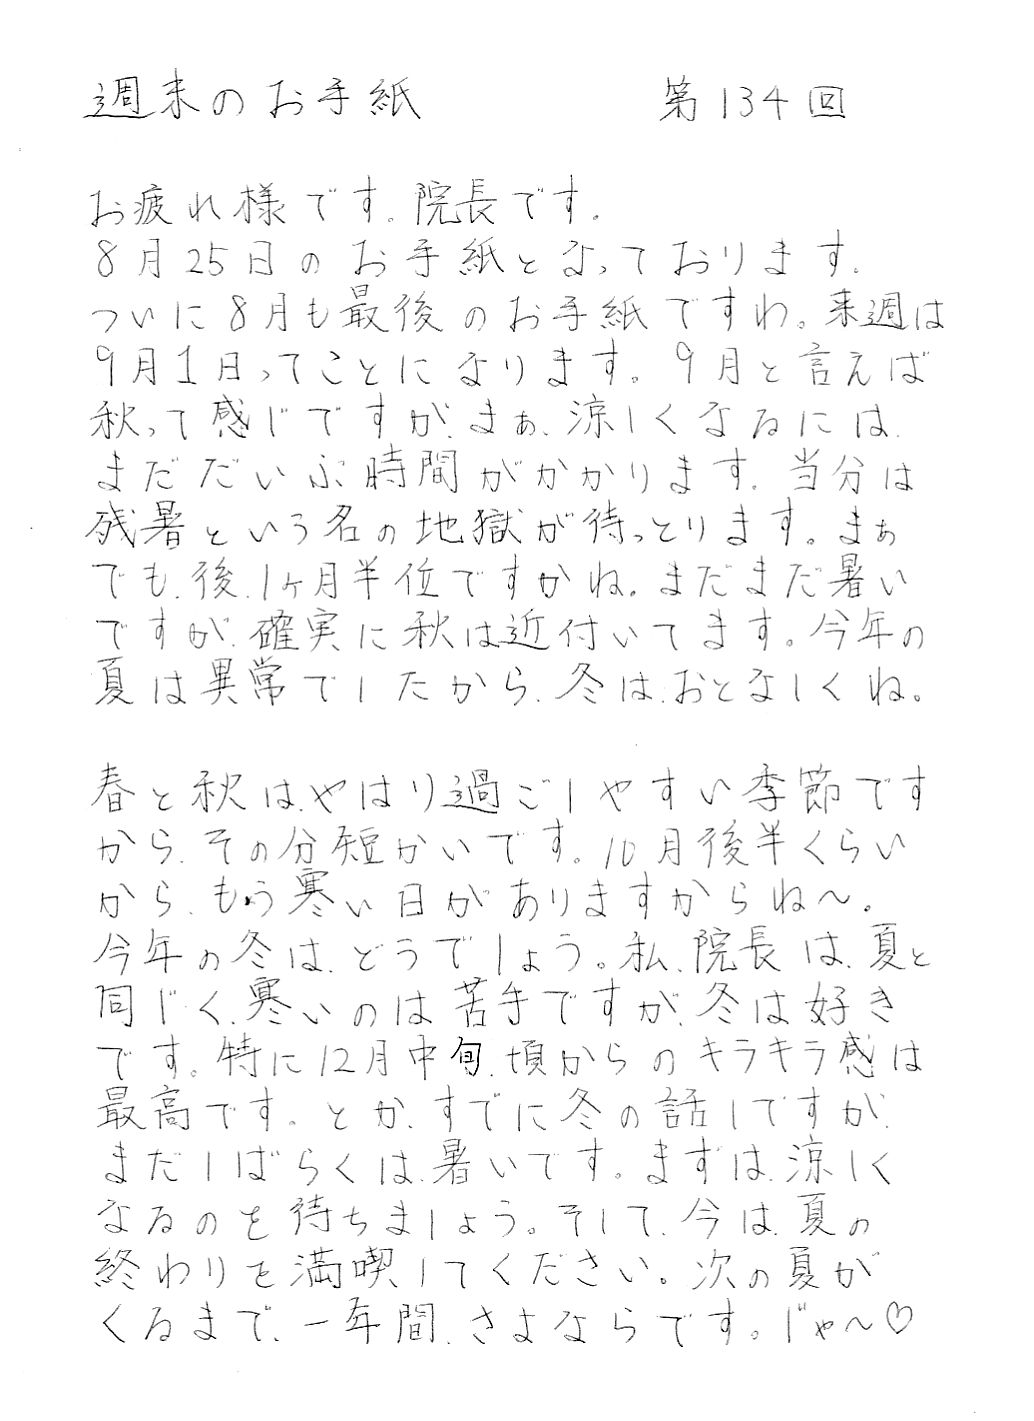 週末のお手紙 第134回
お疲れ様です。院長です。
8月25日のお手紙となっております。
ついに8月も最後のお手紙ですわ。来週は
9月1日ってことになります。9月と言えば
秋って感じですが、まぁ、涼しくなるには、
まだだいぶ時間がかかります。当分は
残暑という名の地獄が待っとります。まぁ
でも、後、1ヶ月半位ですかね。まだまだ暑い
ですが、確実に秋は近付いてます。今年の
夏は異常でしたから、冬は、おとなしくね。
春と秋は、やはり過ごしやすい季節です
から、その分短かいです。10月後半くらい
から、もう寒い日がありますからね〜。
今年の冬は、どうでしょう。私、院長は、夏と
同じく、寒いのは苦手ですが、冬は好き
です。特に12月中旬、頃からのキラキラ感は
最高です。とか、すでに冬の話しですが、
まだしばらくは、暑いです。まずは、涼しく
なるのを待ちましょう。そして、今は、夏の
終わりを満喫してください。次の夏が
くるまで、一年間、さよならです。じゃ〜♡